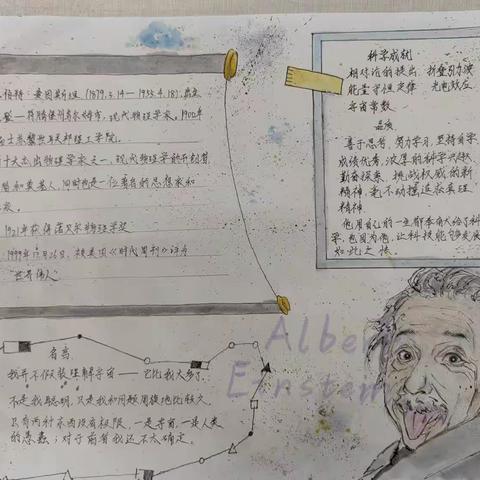 伯特·爱因斯坦（1879.3.14—1955.4.18），出生
登—符腾堡州乌尔姆市，现代物理学家。1900年
士苏黎世联邦理工学院。
十大杰出物理学家之一，现代物理学的开创者
和奠基人，同时也是一位著名的思想家和
家。
1921年获得诺贝尔物理学奖
1999年12月26日，被美国《时代周刊》评为
"世界伟人"
科学成就
相对论的提出
能量守恒定律 光电效应
宇宙常数
品质
善于思考，努力学习，坚持自学
成绩优秀，浓厚的科学兴趣
勤奋探索，挑战权威的新
精神，毫不动摇追求真理
精神
他用自己的一生都奉献给了科
学，也因为他，让科技能够发展
如此之快。
名言
我并不假装理解宇宙——它比我大多了。
不是我聪明，只是我和问题周旋地比较久
只有两种东西没有极限，一是宇宙，一是人类
的愚蠢；对于前者我还不太确定。
Albert
Einstein